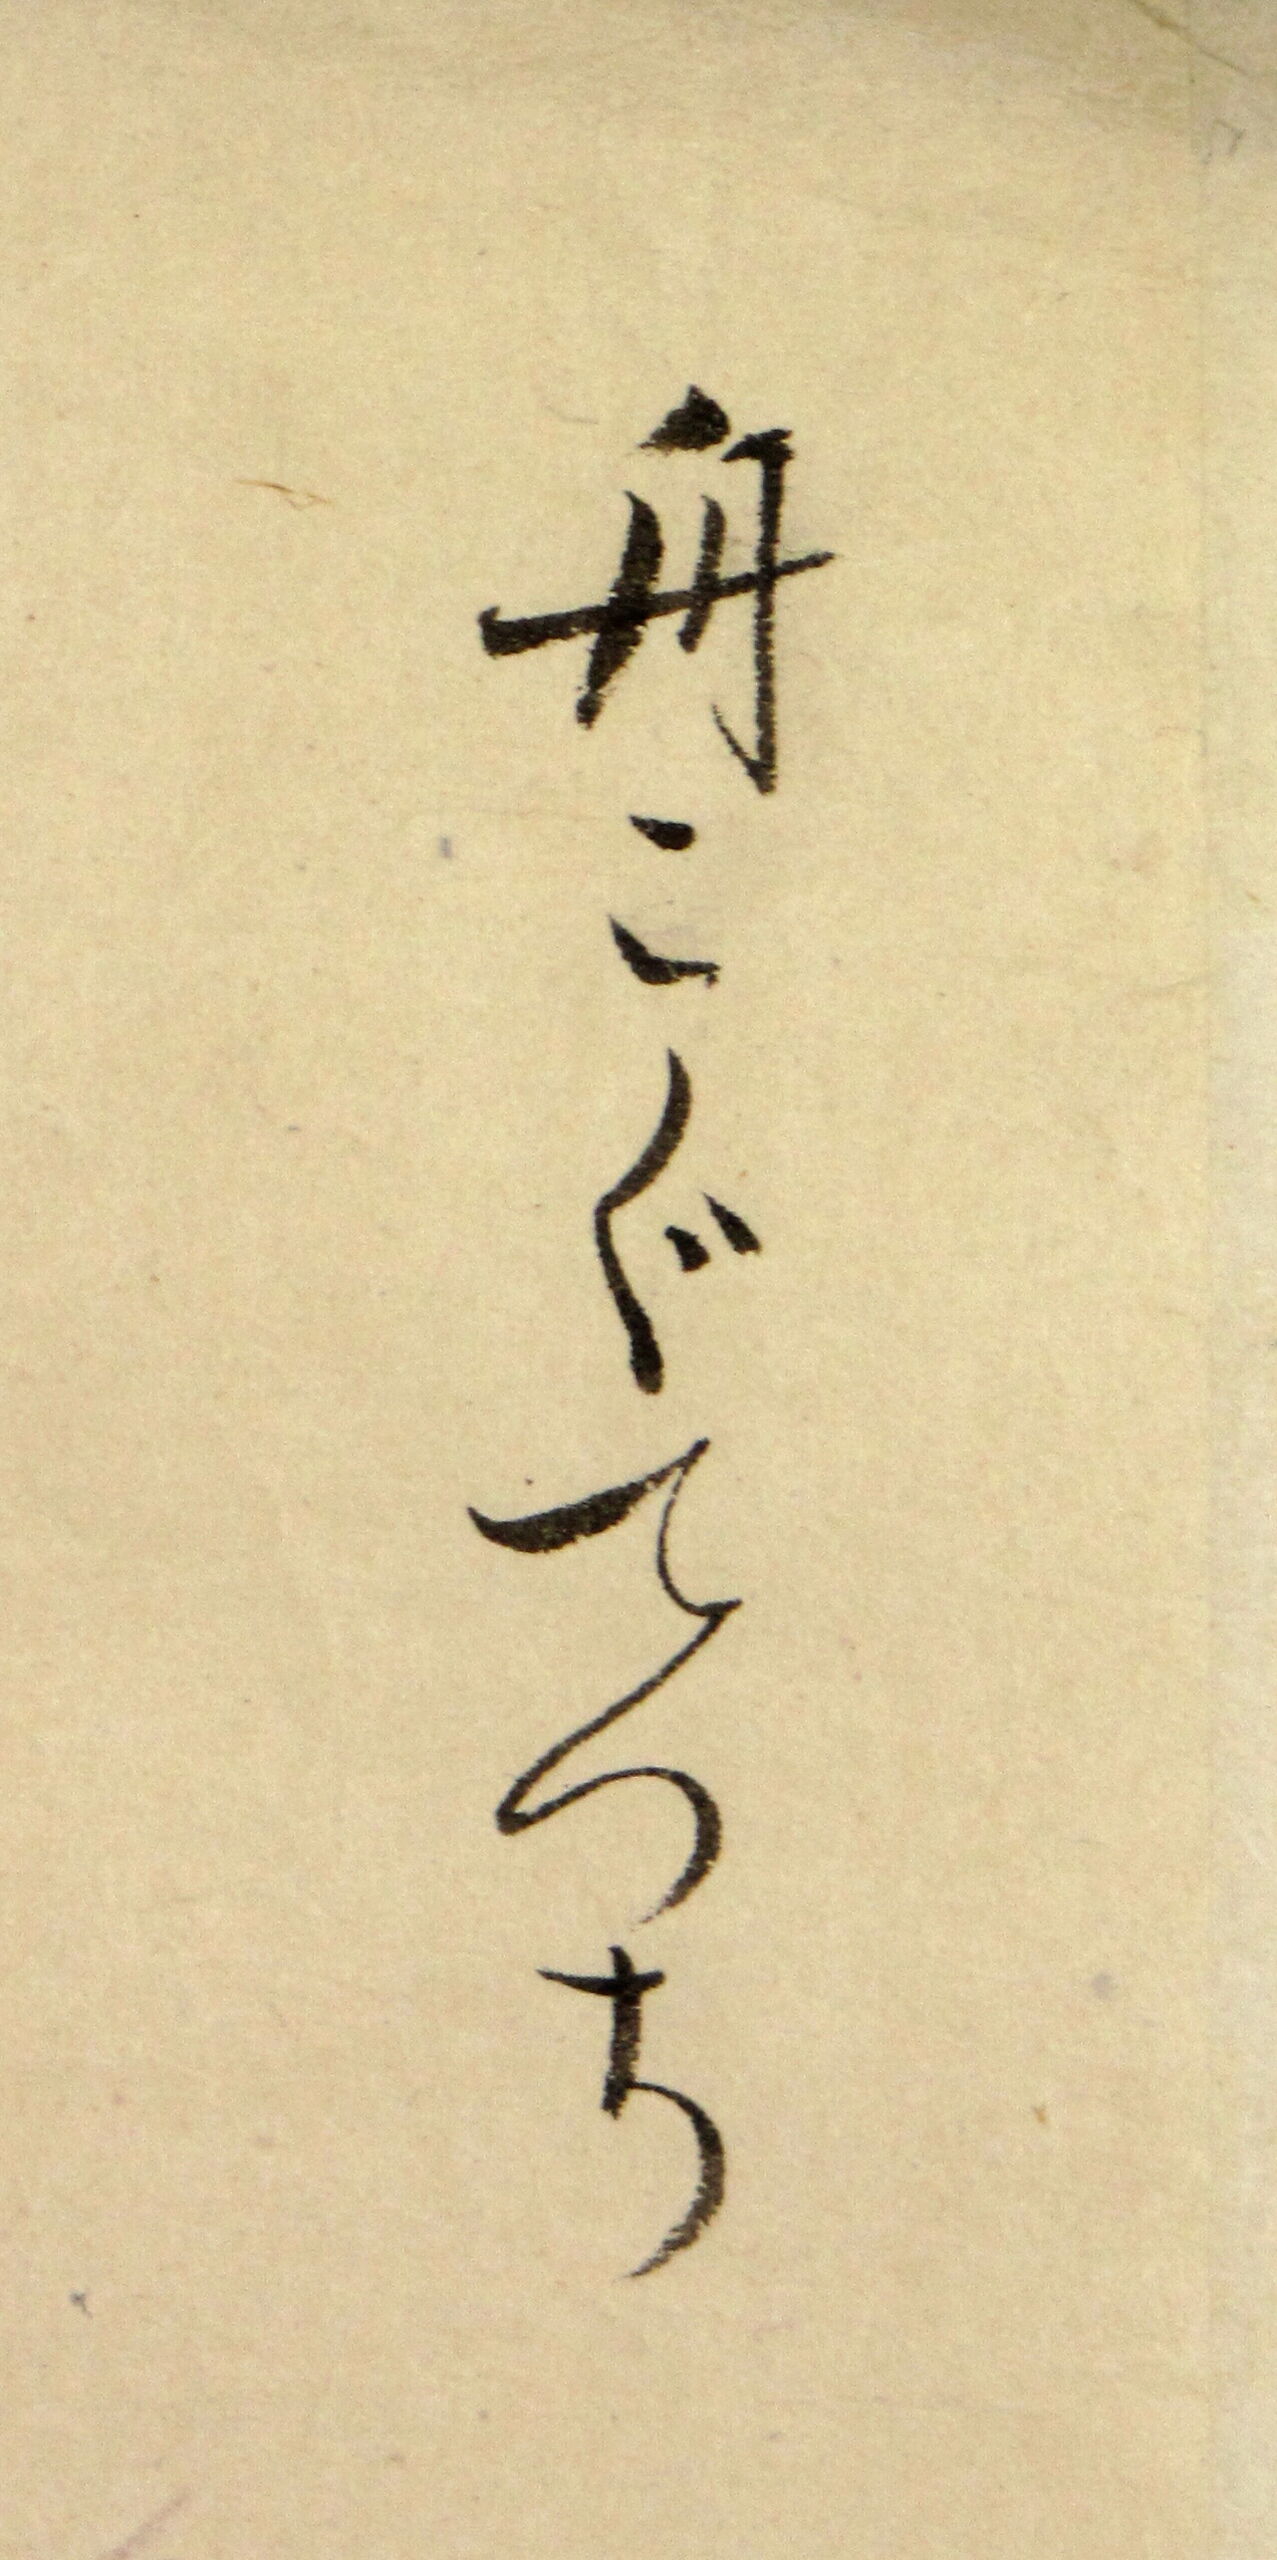 舟こぐてつち